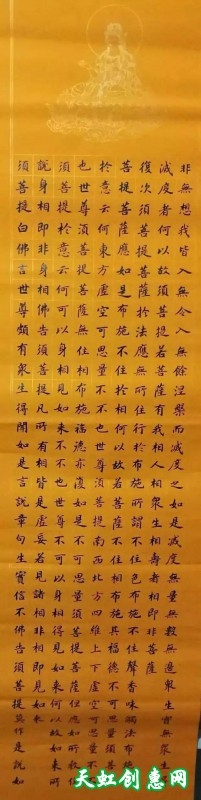 非無想我皆入無令入無餘涅槃而滅度之如是滅度無量無數無邊眾生實無眾生
滅度者何以故須菩提若菩薩有我相人相眾生相壽者相即非菩薩
復次須菩提菩薩於法應無所住行於布施所謂不住色布施不住聲香味觸法布施
菩提菩薩應如是布施不住於相何以故若菩薩不住相布施其福德不可思量須菩
於意云何東方虛空可思量不不也世尊須菩提南西北方四維上下虛空可思量不
也世尊須菩提菩薩無住相布施福德亦復如是不可思量須菩提菩薩但應如所教住
須菩提於意云何可以身相見如來不不也世尊不可以身相得見如來何以故如來所
說身相即非身相佛告須菩提凡所有相皆是虛妄若見諸相非相即見如來
須菩提白佛言世尊頗有眾生得聞如是言說章句生實信不佛告須菩提莫作是說如
天虹创惠网